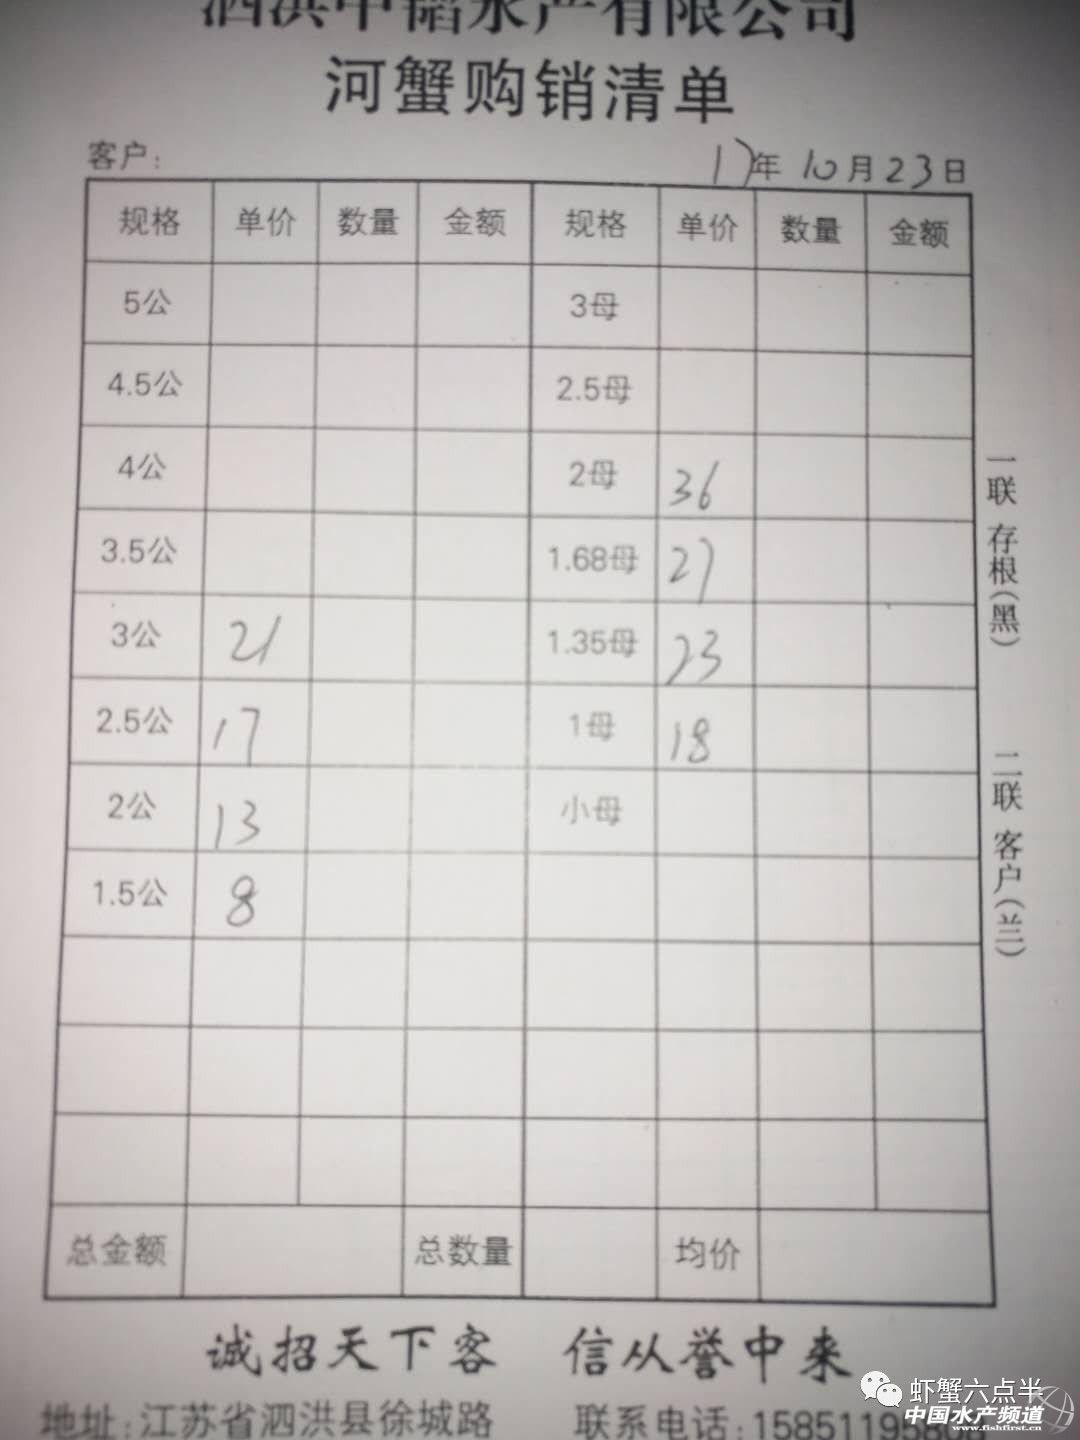 泗洪中韬水产有限公司
河蟹购销清单
客户: 17年10月23日
规格 单价 数量 金额 规格 单价 数量 金额
5公 3母
4.5公 2.5母
4公 2母 36
3.5公 1.68母 27
3公 21 1.35母 23
2.5公 17 1母 18
2公 13 小母
1.5公 8
总金额 总数量 均价
一联 存根(黑) 二联 客户(兰)
诚招天下客 信从誉中来
地址:江苏省泗洪县徐城路 联系电话:158511958
虾蟹六点半
中国水产频道
www.fishfirst.cn